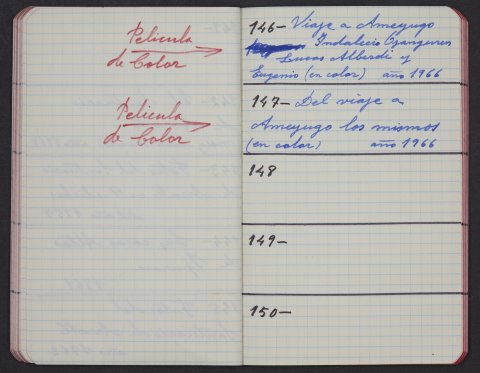 Pelicula
de Color
Pelicula
de Color
146- Viaje a Ameyugo
Indalecio Ojanguren
Lucas Alberdi y
Eugenio (en color) año 1966
147- Del viaje a
Ameyugo los mismos
(en color) año 1966
148
149-
150-